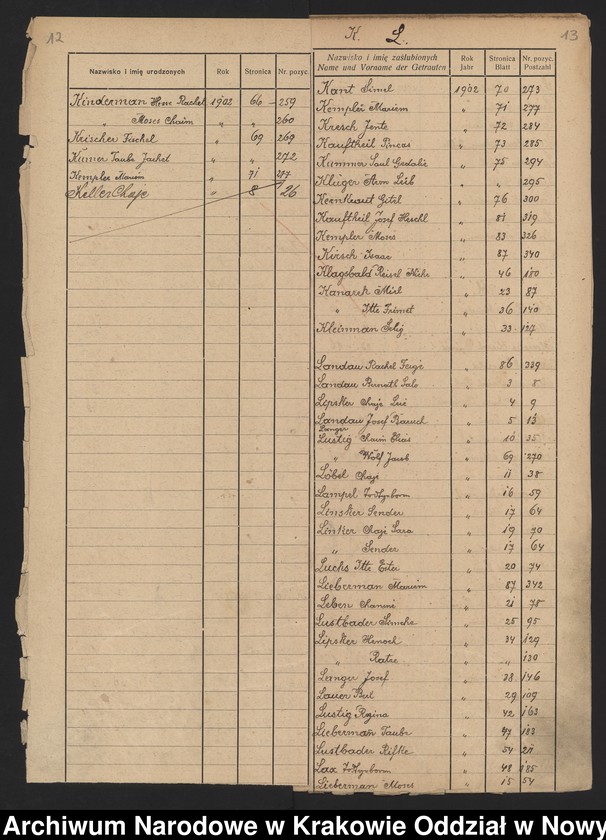 12
Nazwisko i imię urodzonych Rok Stronica Nr. pozyc.
Kinderman Hem Rachel 1902 66 259
„ Moses Chaim „ „ 260
Krischer Fischel „ 69 269
Kümer Taube Jachet „ „ 272
Kempler Mariem „ 71 277
Keller Chaje „ 8 26
K. L. 13
Nazwisko i imię zaślubionych Rok Stronica Nr. pozyc.
Name und Vorname der Getrauten Jahr Blatt Postzahl
Kant Simel 1902 70 273
Kempler Mariem „ 71 277
Kresch Jente „ 72 284
Kauftheil Pincas „ 73 285
Kummer Saul Gedalie „ 75 294
Klüger Aron Leib „ „ 295
Kernkraut Gitel „ 76 300
Kauftheil Josef Herschl „ 81 319
Kempler Moses „ 83 326
Kirsch Isaac „ 87 340
Klagsbald „ 46 180
Kanarek Mirl „ 23 87
„ Itte Frimet „ 36 140
Kleinman Selig „ 33 127
Landau Rachel Feige „ 86 339
Landau Sale „ 3 8
Lipsker Chaje „ 4 9
Landau Josef Baruch „ 5 13
Langer
Lustig Chaim Elias „ 10 35
„ Wolf Jacob „ 69 270
Löbel Chaje „ 11 38
Lampel „ 16 59
Linsker Sender „ 17 64
Linker Chaje Sara „ 19 70
„ Sender „ 17 64
Luchs Itte Ester „ 20 74
Lieberman Mariem „ 87 342
Leben „ 21 78
Lustbader Simche „ 25 95
Lipsker Henoch „ 34 129
„ „ „ 130
Langer Josef „ 38 146
Lauer Berl „ 29 109
Lustig Regina „ 42 163
Lieberman Taube „ 47 183
Lustbader Rifke „ 54 211
Lax „ 48 185
Lieberman Moses „ 15 54
Archiwum Narodowe w Krakowie Oddział w Nowy